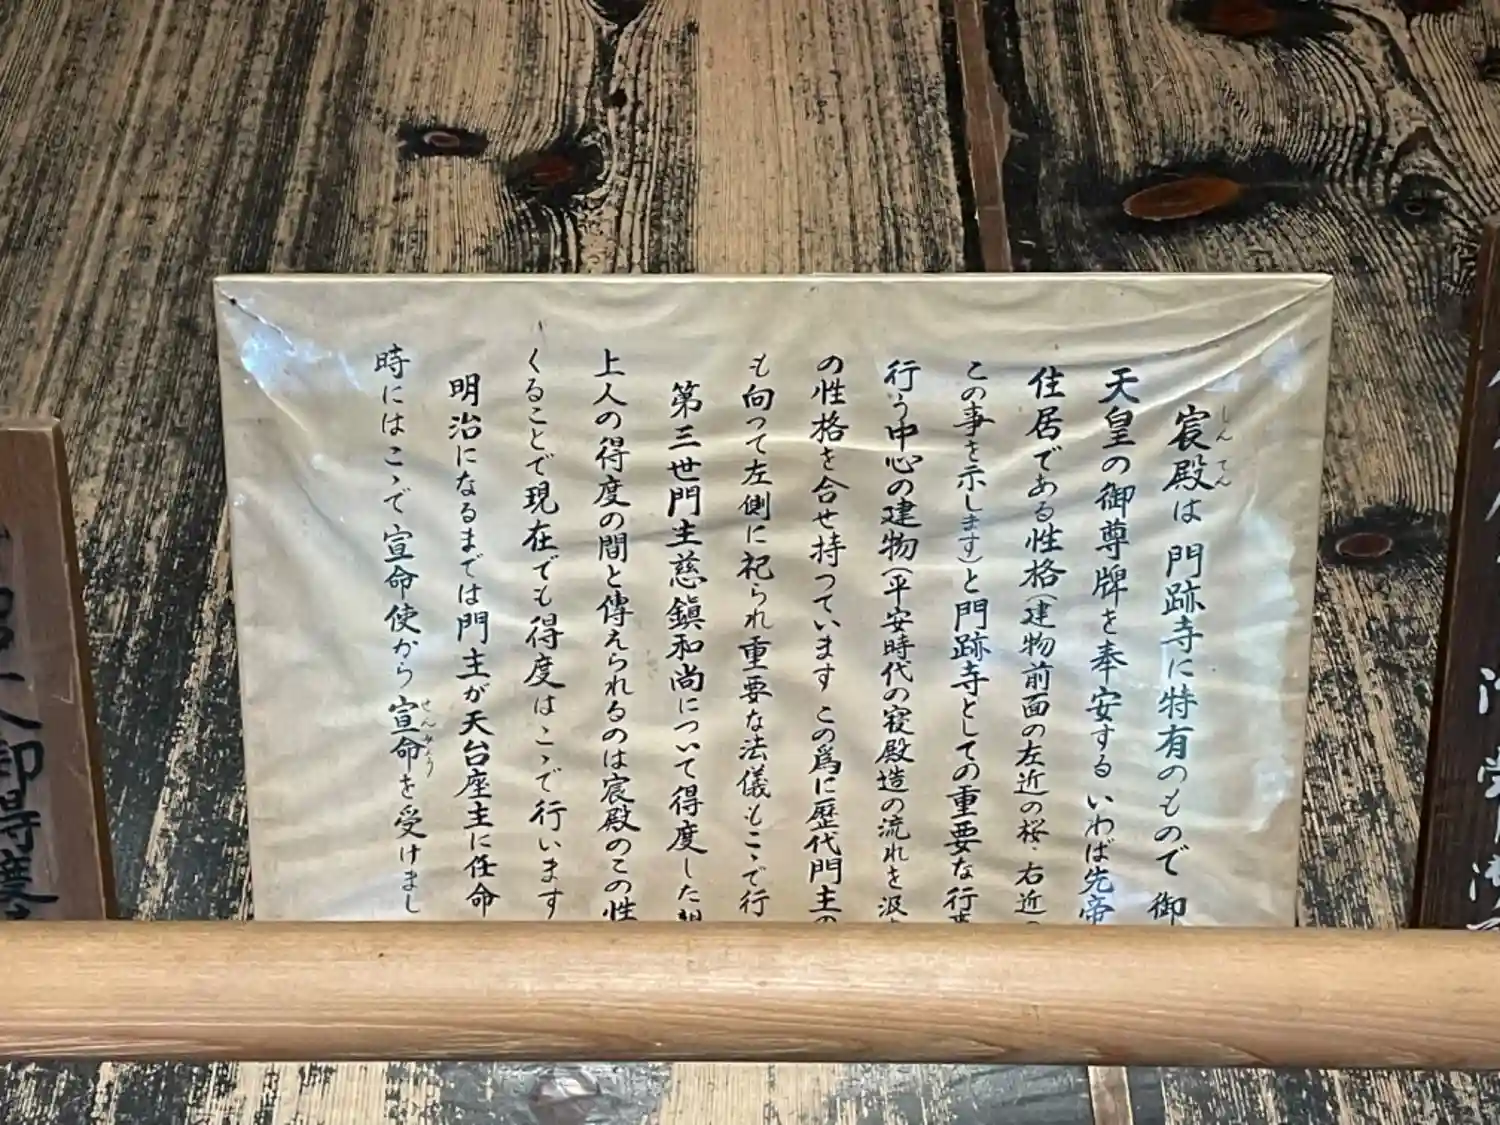 宸殿は門跡寺に特有のもので御
しんでん
天皇の御尊牌を奉安するいわば先帝
住居である性格(建物前面の左近の桜、右近
この事を示します)と門跡寺としての重要な行
行う中心の建物(平安時代の寝殿造の流れを汲
の性格を合せ持っています この爲に歴代門主の
も向って左側に祀られ重要な法儀もこゝで行
第三世門主慈鎭和尚について得度した親
上人の得度の間と傳えられるのは宸殿のこの性
くることで現在でも得度はこゝで行います
明治になるまでは門主が天台座主に任命
時にはこゝで宣命使から宣命を受けまし
せんみょう